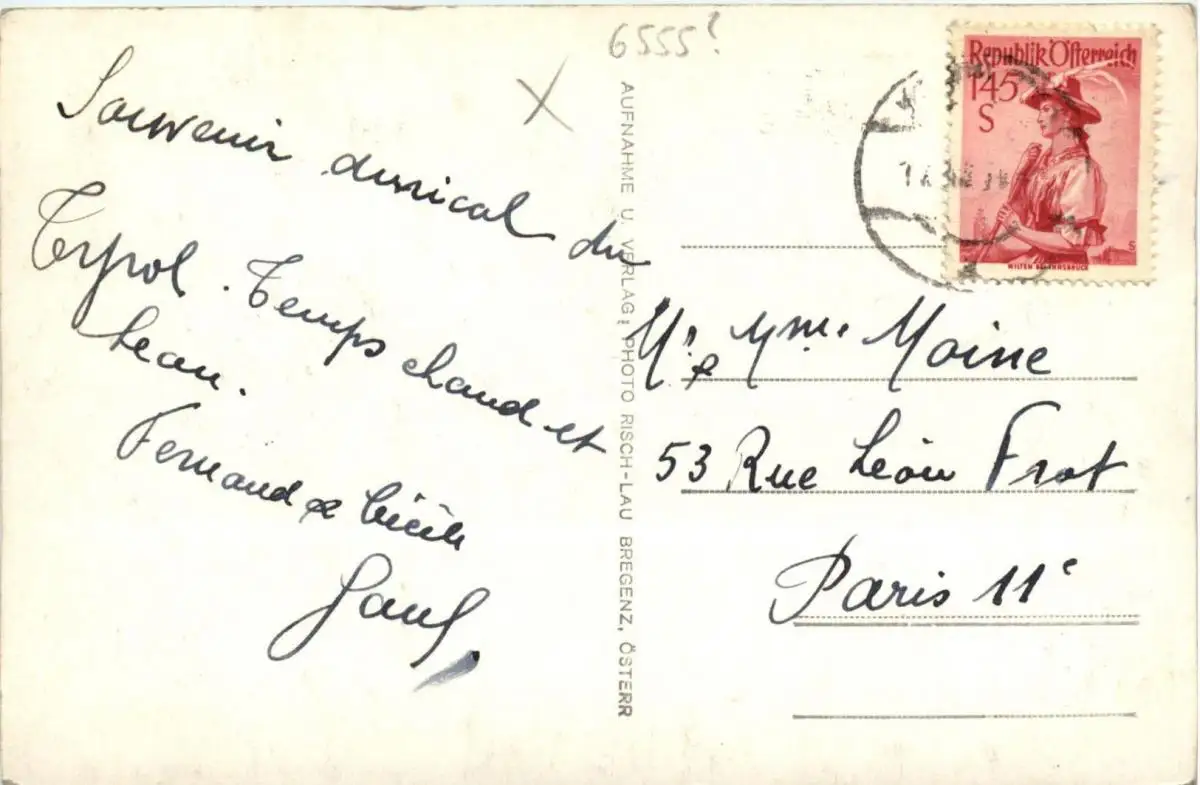 6555?
X
Souvenir amical du
Tyrol. Temps chaud et
beau.
Fernand & Cécile
AUFNAHME U. VERLAG, PHOTO RISCH-LAU BREGENZ, ÖSTERR
Republik Österreich
1·45
S
WILTEN BEI INNSBRUCK
S
Mr & Mme Moine
53 Rue Léon Frot
Paris 11e